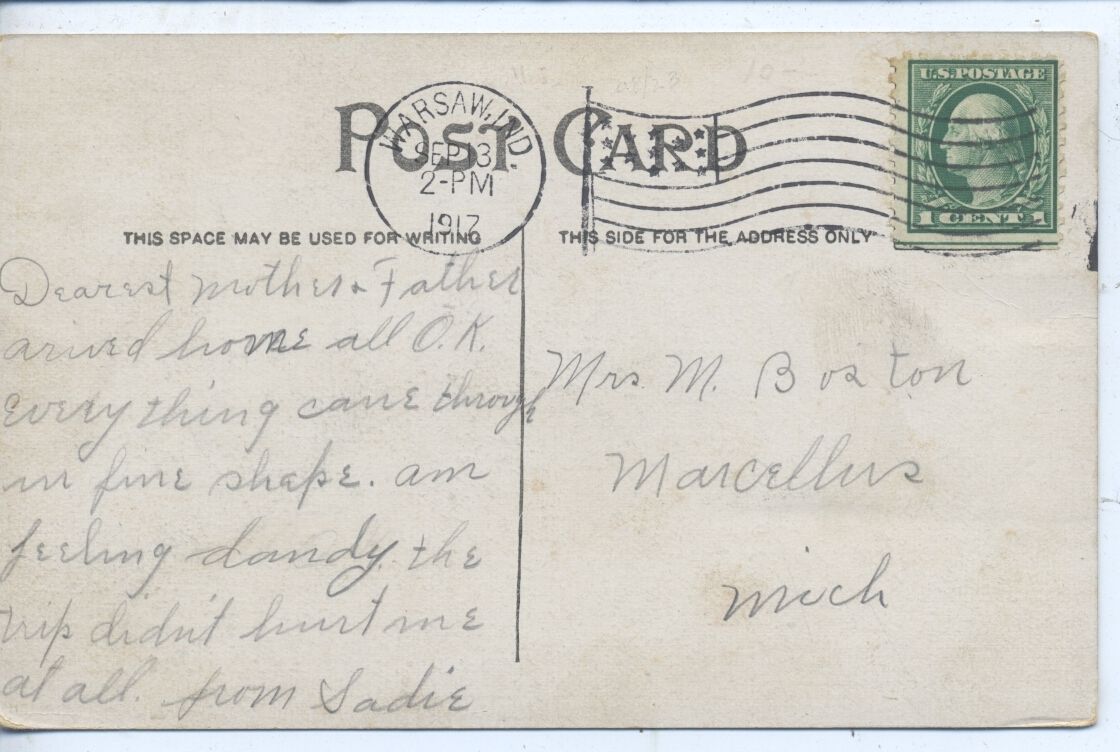 POST CARD
WARSAW, IND.
SEP 3
2-PM
1917
U.S. POSTAGE
1 CENT 1
THIS SPACE MAY BE USED FOR WRITING
THIS SIDE FOR THE ADDRESS ONLY
Dearest Mother & Father
arived home all O.K.
Everything came through
in fine shape. am
feeling dandy. the
trip didn't hurt me
at all. from Sadie
Mrs M. Boston
Marcellus
Mich